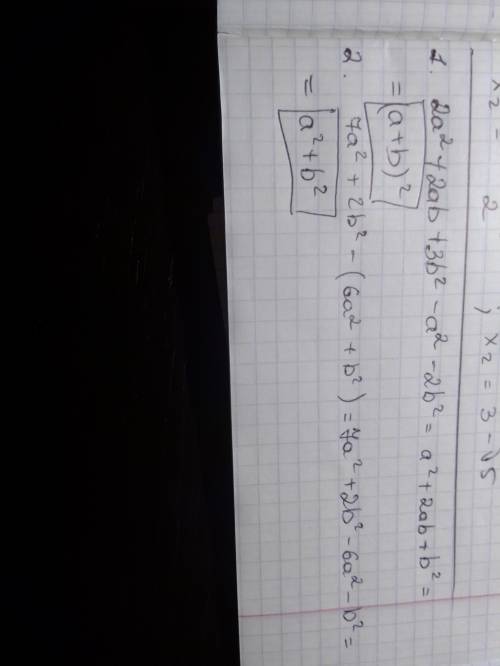 x₂ = 2 ; x₂ = 3 - √5
1. 2a² + 2ab + 3b² - a² - 2b² = a² + 2ab + b² =
= (a+b)²
2. 7a² + 2b² - (6a² + b²) = 7a² + 2b² - 6a² - b² =
= a² + b²